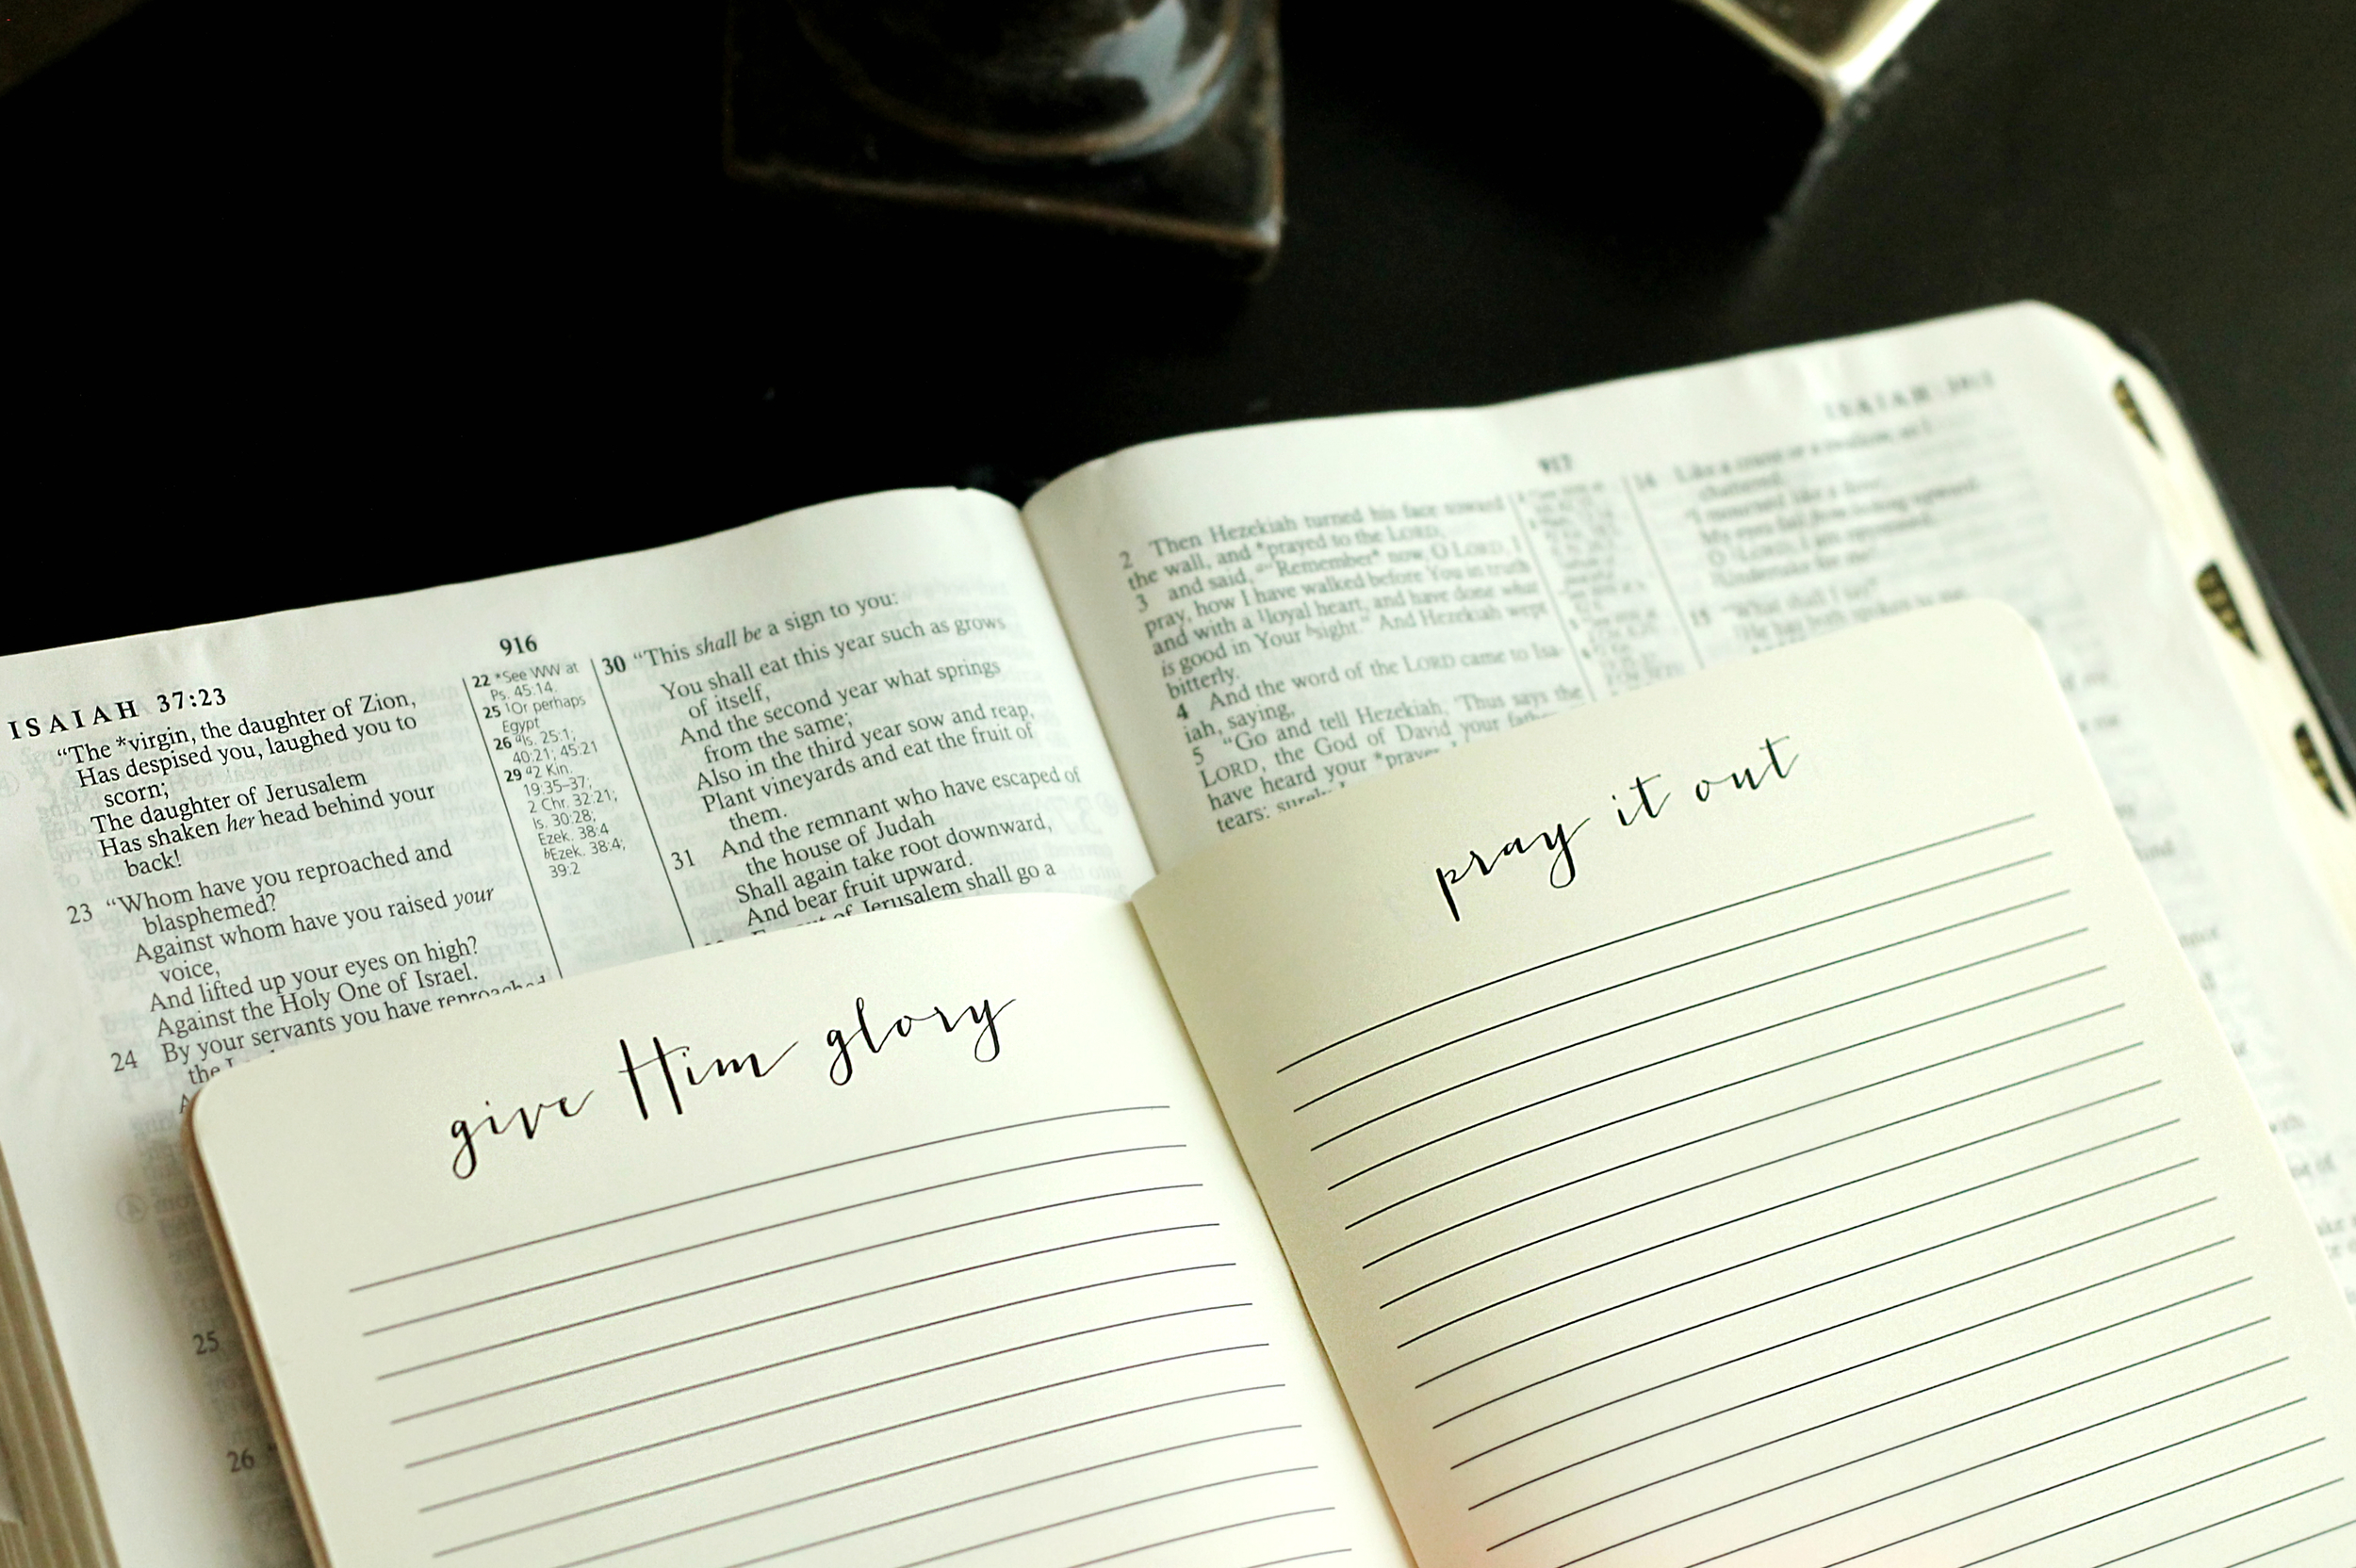 ISAIAH 37:23
916
“The *virgin, the daughter of Zion,
Has despised you, laughed you to
scorn;
The daughter of Jerusalem
Has shaken her head behind your
back!
23 “Whom have you reproached and
blasphemed?
Against whom have you raised your
voice,
And lifted up your eyes on high?
Against the Holy One of Israel.
24 By your servants you have reproached
the
25
26
22 *See WW at
Ps. 45:14.
25 1Or perhaps
Egypt
26 aIs. 25:1;
40:21; 45:21
29 a2 Kin.
19:35–37;
2 Chr. 32:21;
Is. 30:28;
Ezek. 38:4
bEzek. 38:4;
39:2
30 “This shall be a sign to you:
You shall eat this year such as grows
of itself,
And the second year what springs
from the same;
Also in the third year sow and reap,
Plant vineyards and eat the fruit of
them.
31 And the remnant who have escaped of
the house of Judah
Shall again take root downward,
And bear fruit upward.
of Jerusalem shall go a
917
ISAIAH
2 Then Hezekiah turned his face toward
the wall, and *prayed to the LORD,
3 and said, “Remember* now, O LORD, I
pray, how I have walked before You in truth
and with a loyal heart, and have done what
is good in Your sight.” And Hezekiah wept
bitterly.
4 And the word of the LORD came to Isa-
iah, saying,
5 “Go and tell Hezekiah, ‘Thus says the
LORD, the God of David your
have heard your *prayer,
tears; surely
14 Like a crane or a swallow, so I
chattered;
I mourned like a dove;
My eyes fail from looking upward.
O LORD, I am oppressed;
Undertake for me!
15 “What shall I say?
He has both spoken to me,
give Him glory
pray it out